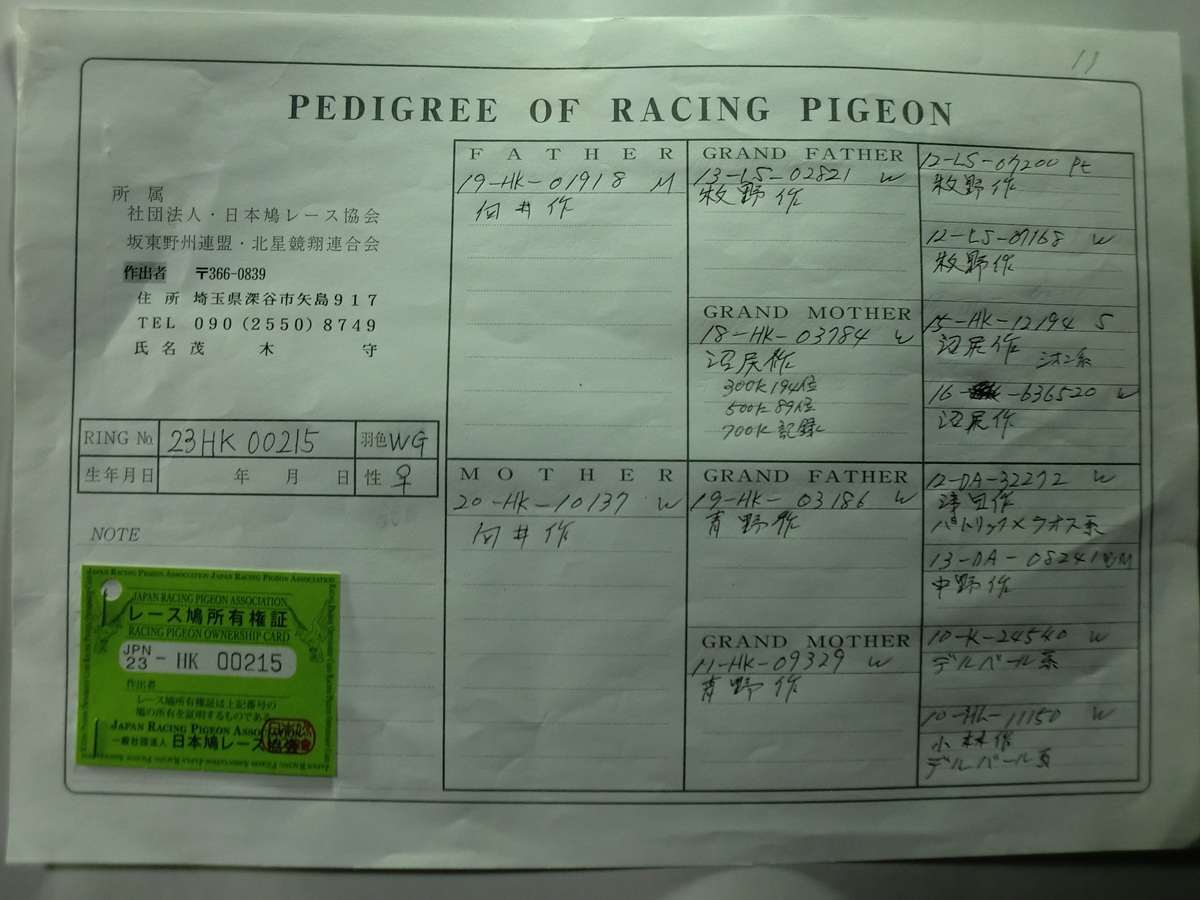 11
PEDIGREE OF RACING PIGEON
所属
社団法人・日本鳩レース協会
坂東野州連盟・北星競翔連合会
作出者 〒366-0839
住所 埼玉県深谷市矢島917
TEL 090(2550)8749
氏名 茂木 守
RING No. 23HK 00215 羽色 WG
生年月日 年 月 日 性 ♀
NOTE
JAPAN RACING PIGEON ASSOCIATION JAPAN RACING PIGEON ASSOCIATION
JAPAN RACING PIGEON ASSOCIATION
レース鳩所有権証
RACING PIGEON OWNERSHIP CARD
JPN
23 - HK 00215
作出者
レース鳩所有権証は上記番号の
鳩の所有を証明するものである
JAPAN RACING PIGEON ASSO
一般社団法人 日本鳩レース協会
FATHER
19-HK-01918 M
向井作
MOTHER
20-HK-10137 W
向井作
GRAND FATHER
13-LS-02821 W
牧野作
GRAND MOTHER
18-HK-03784 W
沼尻作
300K 194位
500K 89位
700K 記録
GRAND FATHER
19-HK-03186 W
青野作
GRAND MOTHER
11-HK-09329 W
青野作
12-LS-07200 Pt
牧野作
12-LS-07168 W
牧野作
15-HK-12194 S
沼尻作 シオン系
16- -636520 W
沼尻作
12-DA-32272 W
津田作
パトリック×ラオス系
13-DA-08241
中野作
10-K-24540 W
デルバール系
10-HL-11150 W
小林作
デルバール系